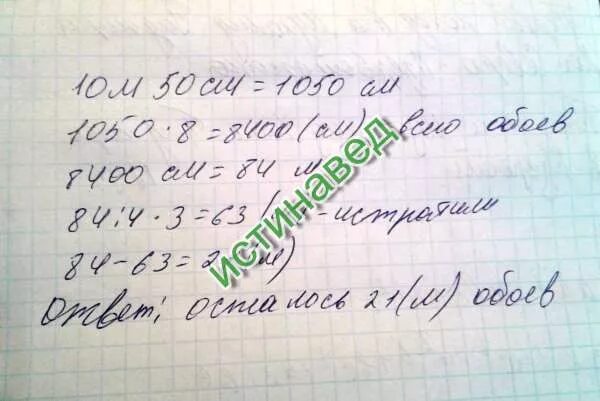 10м 50см = 1050 см
1050 · 8 = 8400 (см) всего обоев
8400 см = 84 м
84:4 · 3 = 63 ( - истратили
84 - 63 = 2 м)
Ответ: осталось 21(м) обоев
истинавед